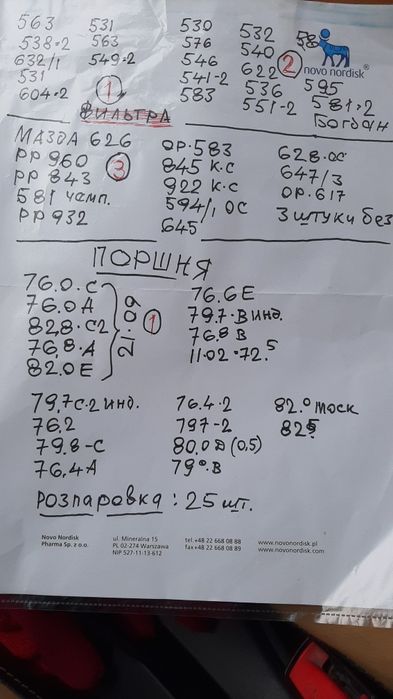 563
538·2
632/1
531
604·2
531
563
549·2
1
530
576
546
541-2
583
532
540
622
536
551·2
2
novo nordisk®
595
581·2
Богдан
Фильтра
МАЗДА 626
PP 960
PP 843
581 чемп.
PP 932
3
ОР·583
845 К.С
922 К.С
594/1 ОС
645
628·ОС
647/3
ОР·617
3 штуки без
ПОРШНЯ
76.0.С
76.0А
82.8·С2
76,8·А
82.0Е
21.09
1
76.6Е
79.7·В инд.
76.8 В
11.02·72.5
79,7С·2 инд.
76,2
79.8-С
76,4А
76.4·2
797-2
80.0Д (0,5)
79⁰·В
82.⁰ моск
82.5
Розпаровка: 25 шт.
Novo Nordisk
Pharma Sp. z o.o.
ul. Mineralna 15
PL 02-274 Warszawa
NIP 527-11-13-612
tel.+48 22 668 08 88
fax+48 22 668 08 89
www.novonordisk.pl
www.novonordisk.com